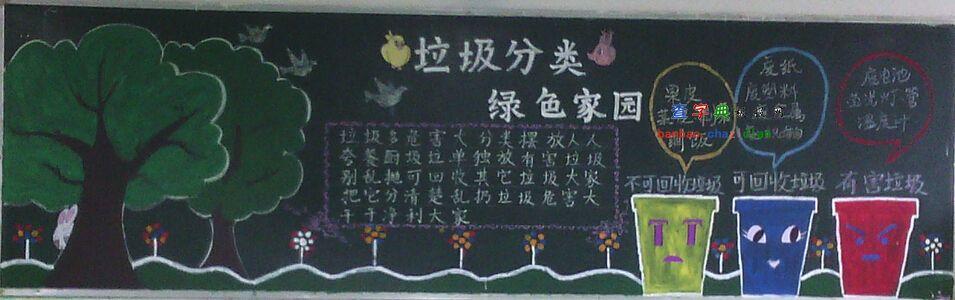 垃圾分类
绿色家园
垃圾多危害大分类摆放人人
夸餐厨垃圾单独放有害垃圾
别乱抛可回收其它垃圾大家
把它分清楚乱扔垃圾危害大
干干净利大家
果皮
剩饭
废纸
废塑料
属
废电池
荧光灯管
温度计
查字典
不可回收垃圾
可回收垃圾
有害垃圾